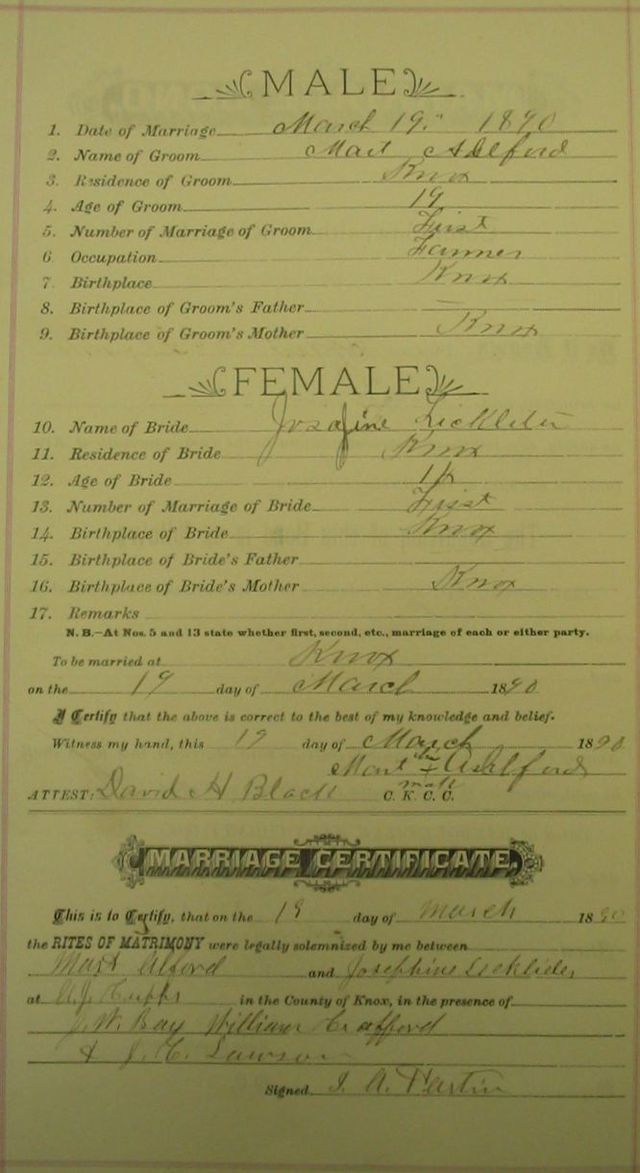 MALE
1. Date of Marriage March 19. 1890
2. Name of Groom Mart
3. Residence of Groom Knox
4. Age of Groom 19
5. Number of Marriage of Groom First
6 Occupation Farmer
7. Birthplace Knox
8. Birthplace of Groom's Father
9. Birthplace of Groom's Mother Knox
FEMALE
10. Name of Bride Josafine
11. Residence of Bride Knox
12. Age of Bride
13. Number of Marriage of Bride First
14. Birthplace of Bride Knox
15. Birthplace of Bride's Father
16. Birthplace of Bride's Mother Knox
17. Remarks
N. B.—At Nos. 5 and 13 state whether first, second, etc., marriage of each or either party.
To be married at Knox
on the 19 day of March 1890
I Certify that the above is correct to the best of my knowledge and belief.
Witness my hand, this 19 day of March 1890
Mart
ATTEST: David H Black C. K. C. C.
MARRIAGE CERTIFICATE.
This is to Certify, that on the 19 day of March 1890
the RITES OF MATRIMONY were legally solemnized by me between
Mart Alford and Josephine
at A. J. in the County of Knox, in the presence of
J. W. Bay William Crafford
& J. C. Lawson
Signed